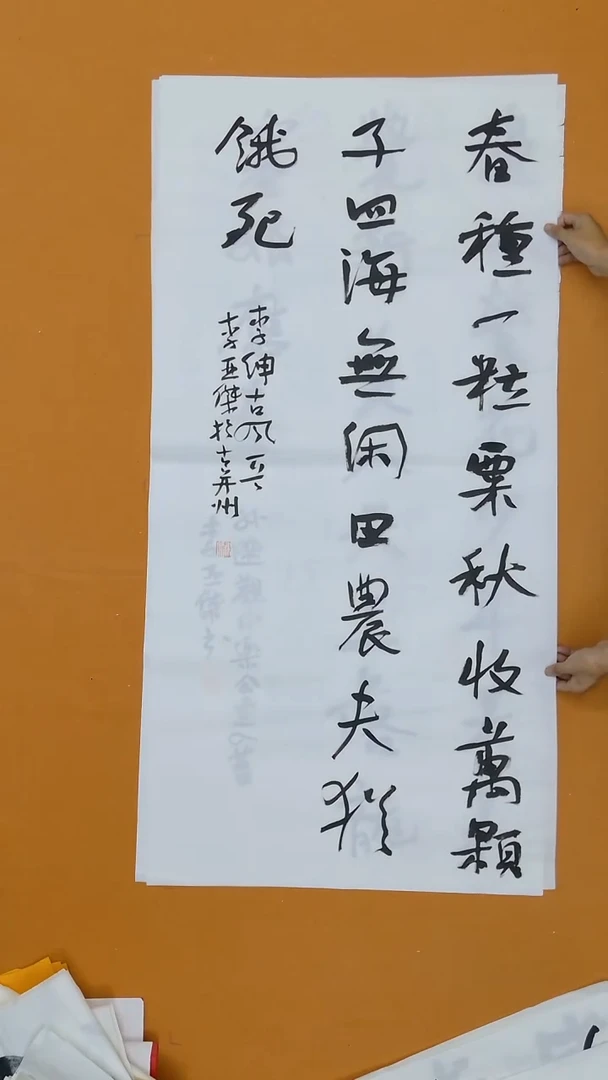 春種一粒粟秋收萬顆
子四海無閑田農夫猶
餓死
李紳古風一首
李亚傑於古并州